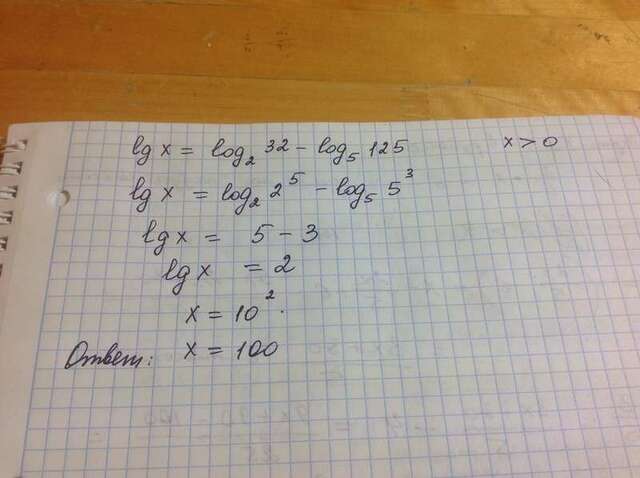 lg x = log₂ 32 − log₅ 125     x > 0
lg x = log₂ 2⁵ − log₅ 5³
lg x = 5 − 3
lg x = 2
x = 10².
Ответ: x = 100